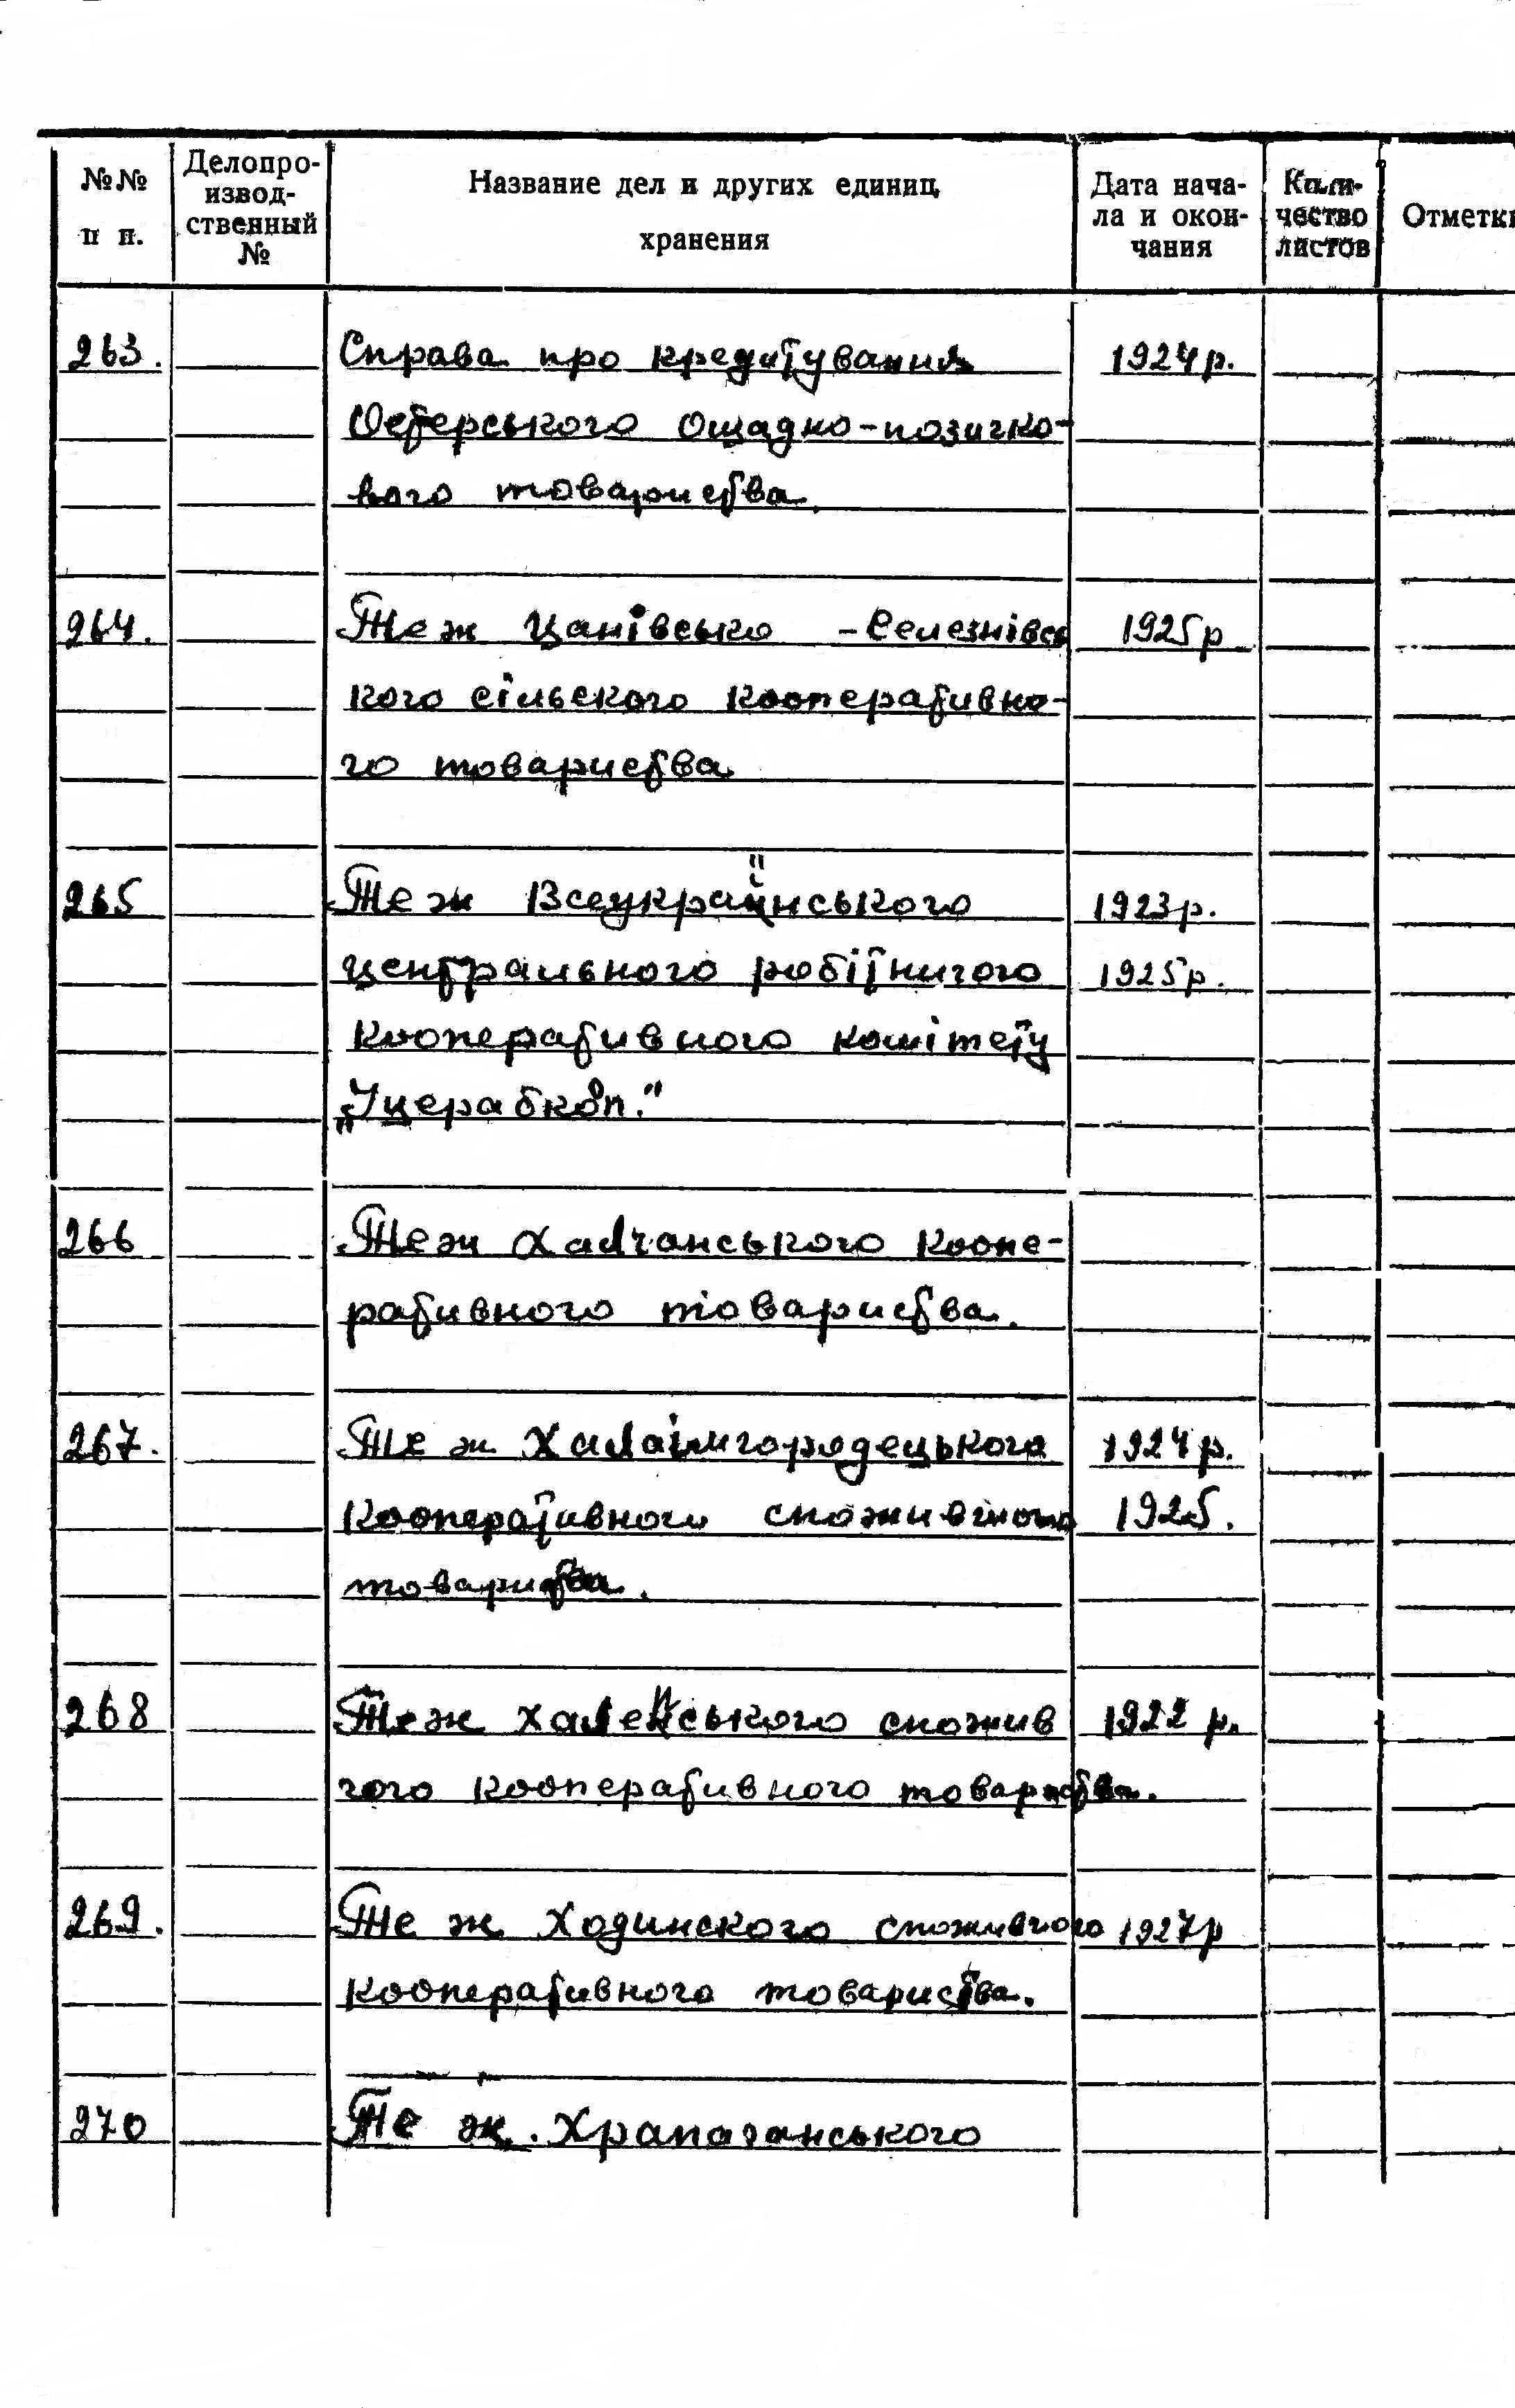 №№ п п. Делопро-извод-ственный № Название дел и других единиц хранения Дата нача-ла и окон-чания Коли-чество листов Отметки
263. Справа про кредитування 1924 р.
Остерського Ощадно-позичко-
вого товариства.
264. Теж Цанівсько - Селезнівсь 1925 р
кого сільского кооперативно-
го товариства
265 Теж Всеукраїнського 1923 р.
центрального робітничого 1925 р.
кооперативного комітету
„Уцерабкоп."
266 Теж Халчанського коопе-
ративного товариства.
267. Те ж Халаімгородецького 1924 р.
кооперативного споживчого 1925.
товариства.
268 Теж Халепського спожив 1922 р.
чого кооперативного товариства.
269. Те ж Ходинского споживчого 1927 р
кооперативного товариства.
270 Те ж. Храпачанського